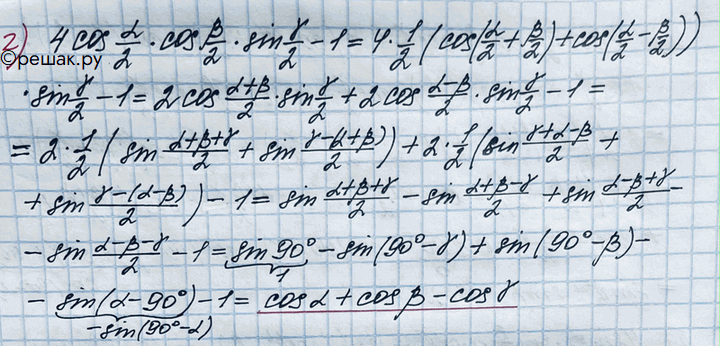 2) 4cos α/2 · cos β/2 · sin γ/2 − 1 = 4 · 1/2 (cos(α/2 + β/2) + cos(α/2 − β/2))
©решак.ру
· sin γ/2 − 1 = 2cos (α+β)/2 · sin γ/2 + 2cos (α−β)/2 · sin γ/2 − 1 =
= 2 · 1/2 (sin (α+β+γ)/2 + sin (γ−(α+β))/2) + 2 · 1/2 (sin (γ+α−β)/2 +
+ sin (γ−(α−β))/2) − 1 = sin (α+β+γ)/2 − sin (α+β−γ)/2 + sin (α−β+γ)/2 −
− sin (α−β−γ)/2 − 1 = sin 90° − sin(90°−γ) + sin(90°−β) −
1
− sin(α−90°) − 1 = cosα + cosβ − cosγ
−sin(90°−α)